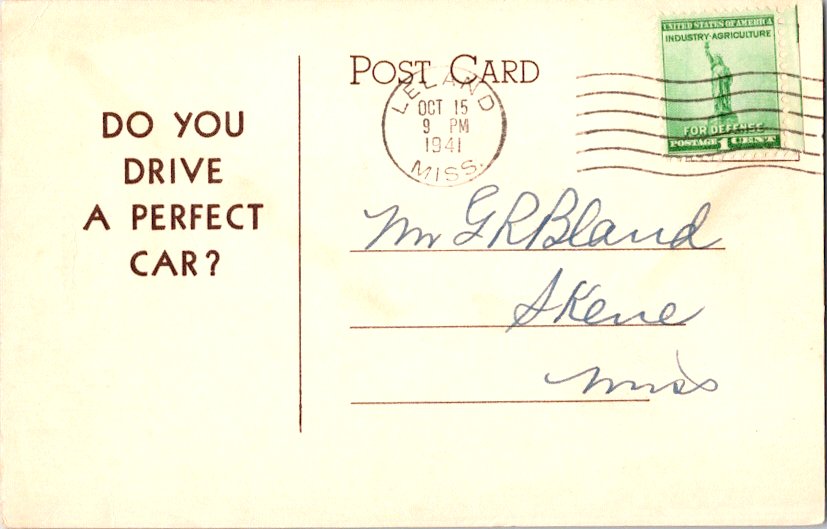 DO YOU
DRIVE
A PERFECT
CAR?
POST CARD
LELAND
OCT 15
9 PM
1941
MISS.
UNITED STATES OF AMERICA
INDUSTRY-AGRICULTURE
FOR DEFENSE
POSTAGE 1 CENT
Mr G R Bland
Skene
Miss